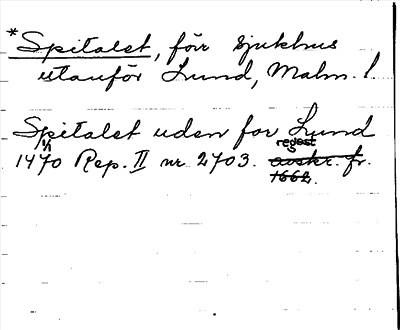 *Spitalet, förr sjukhus
utanför Lund, Malm. l.
Spitalet uden for Lund
1/1 1470 Rep. II nr 2703. regest avskr. fr.
1662.